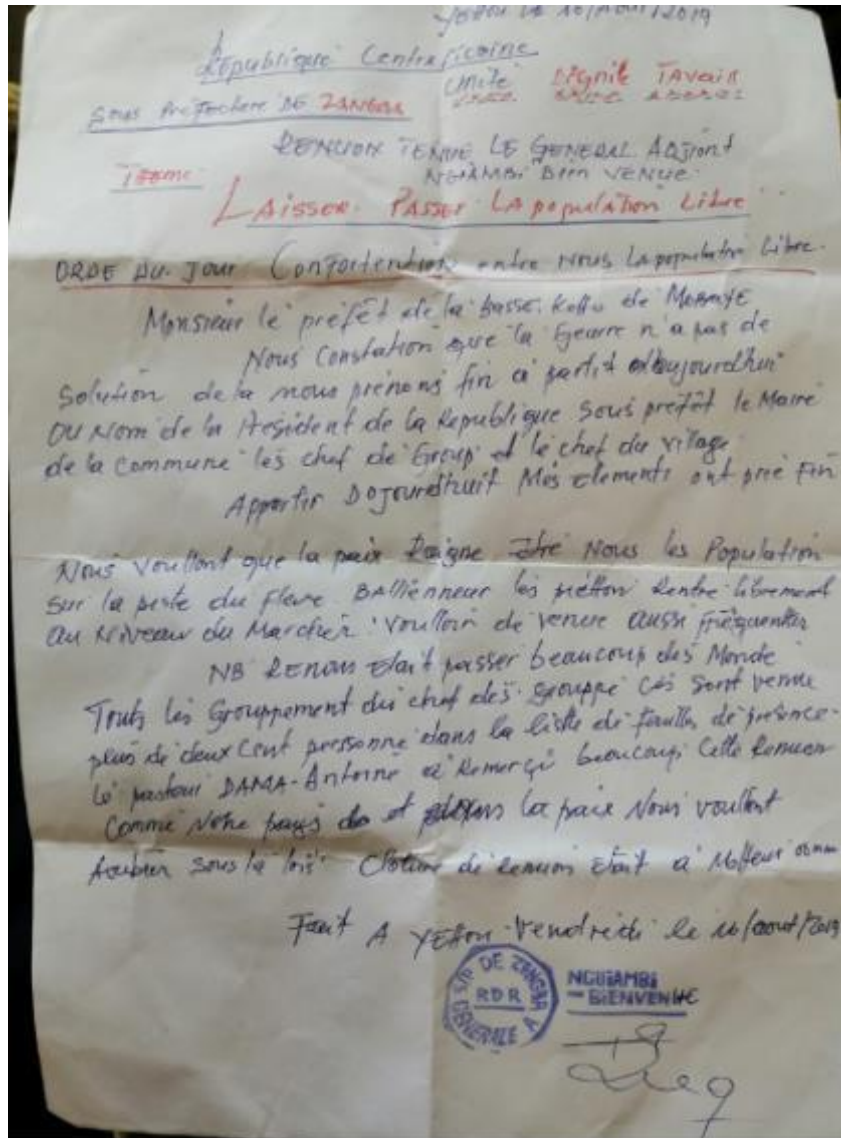 YEttou LE 16/Aout/2019
République Centraficaine
Unité Dignité TAVAIL
Sous Préfecture DE ZANGBA
REMUION TENUE LE GENERAL ADJOINT
NGIAMBI BIEN VENUE
Teeme
LAISSER PASSER LA population Libre
ORDE DU JOUR Confortention entre Nous La population Libre.
Monsieur le préfét de la Basse Kotto de MOBAYE
Nous Constation que la Geurre n'a pas de
Solution de la nous prénons fin a partit daujourdhui
OU Nom de la President de la Republique Sous préfét le Maire
de la Commune les chef de Group et le chef du village
Appartir Dojourdhuit Mes elements ont prie Fin
Nous Voullont que la paix Raigne Nous les Population
Sur la piste du fleve les piétton Rentre librement
au Niveau du Marcher voulloir de venue aussi fréquenter
NB REMION Etait passer beaucoup des Monde
Touts les Grouppement du chef des grouppe Cés Sont venue
plus de deux Cent pressonne dans la liste de faulles de présence
Le pasteur DAMA-Antoine a Remerçé beaucoup Cette Remuon
Comme Notre pays et dans la paix Nous voullont
Sous la lois Cloture de Remion Etait à
Fait A YEttou Vendredi le 16/aout/2019
S/P DE ZANGBA
RDR
GENERALE A
NGUIAMBI
BIENVENUE